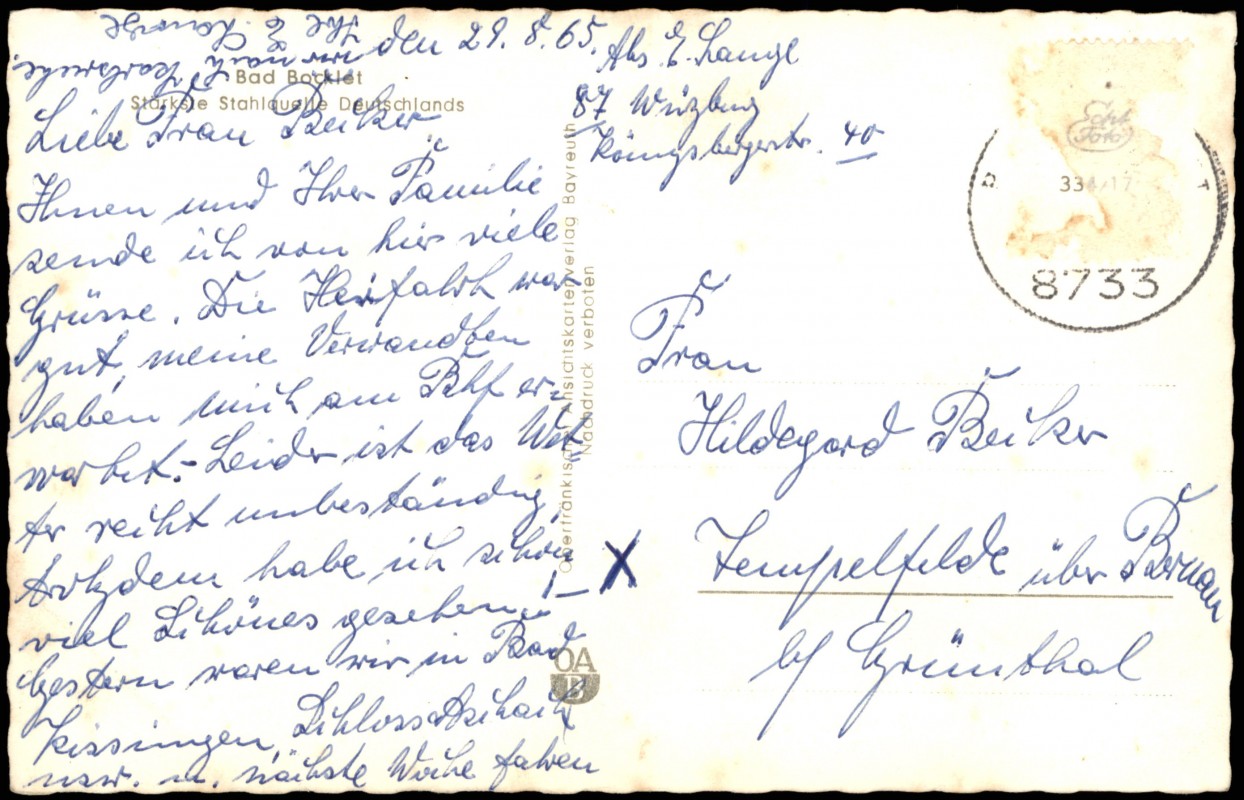 den 29. 8. 65.
Bad Bocklet
Stärkste Stahlquelle Deutschlands
Liebe Frau Becker,
Ihnen und Ihrer Familie
sende ich von hier viele
Grüsse. Die Herfahrt war
gut, meine Verwandten
haben mich am Bhf er-
wartet.- Leider ist das Wet-
ter recht unbeständig,
trotzdem habe ich schon
viel Schönes gesehen!-
Gestern waren wir in Bad
Kissingen, Schloss Aschach
usw. u. nächste Woche fahren
wir nach Karlsruhe.
Ihre E. Lange
Abs. E. Lange
87 Würzburg
Königsbergerstr. 40
Oberfränkischer Ansichtskartenverlag Bayreuth
Nachdruck verboten
OA
B
X
Echt
Foto
334/17
8733
Frau
Hildegard Becker
Tempelfelde über Bernau
b/ Grünthal